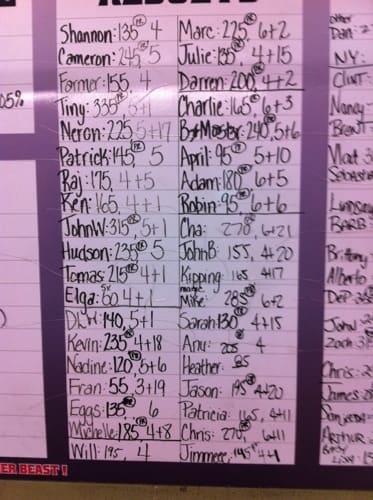 05%
ER BEAST!
Shannon: 135 PR 5
Cameron: 245 PR 5
Farmer: 155, 4
Tiny: 335 PR 5+1
Neron: 225, 5+17
Patrick: 145, PR 5
Raj: 175, 4+5
Ken: 165, 4+1
JohnW: 315 PR, 5+1
Hudson: 235 PR 5
Tomas: 215 PR 4+1
Elga: 50 4+1
DLW: 140, 5+1
Kevin: 235 PR 4+18
Nadine: 120 PR, 5+6
Fran: 55, 3+19
Eggs: 135 PR 6
Michelle: 185 PR 4+8
Will: 195, 4
Marc: 225 PR 6+2
Julie: 135 PR, 4+15
Darren: 200 PR 4+2
Charlie: 165 PR 6+3
240 PR, 5+6
April: 95 PR 5+10
Adam: 180 PR 6+5
Robin: 95 PR 6+6
Cha: 270 PR, 6+21
JohnB: 155, 4+20
Kipping: 165 4+17
Mike: 285 PR 6+2
Sarah: 130 PR 4+15
Anu: 205 PR 4
Heather: 85
Jason: 195 PR 4+20
Patricia: 165, 4+11
Chris: 270, 6+11
Jimmee: 145 4+1
other
Dan:
NY:
Clint:
Nancy
Brent
Matt
Lindsay
Barb
Brittany
Alberto
John
Zach
Chris:
James:
Arthur